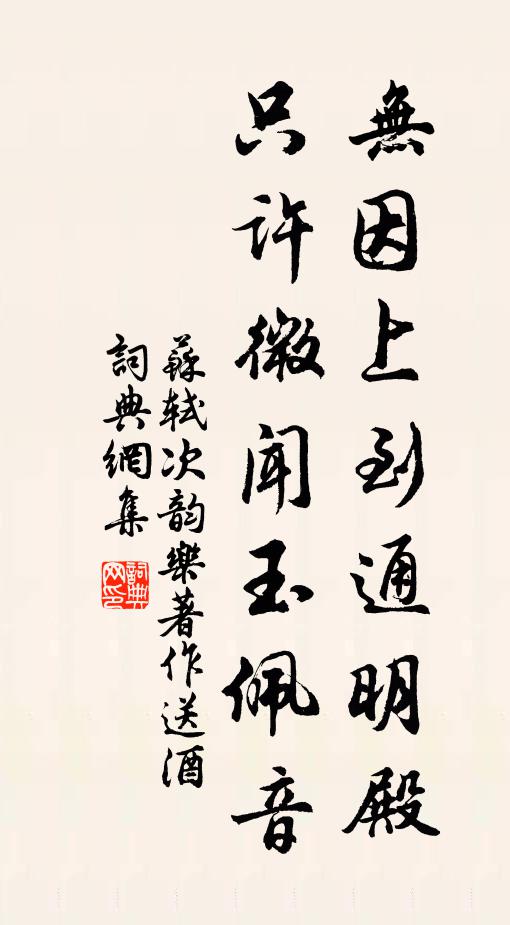 無因上到通明殿
只许微闻玉佩音
蘇軾次韵樂著作送酒
詞典網集
詞典网印